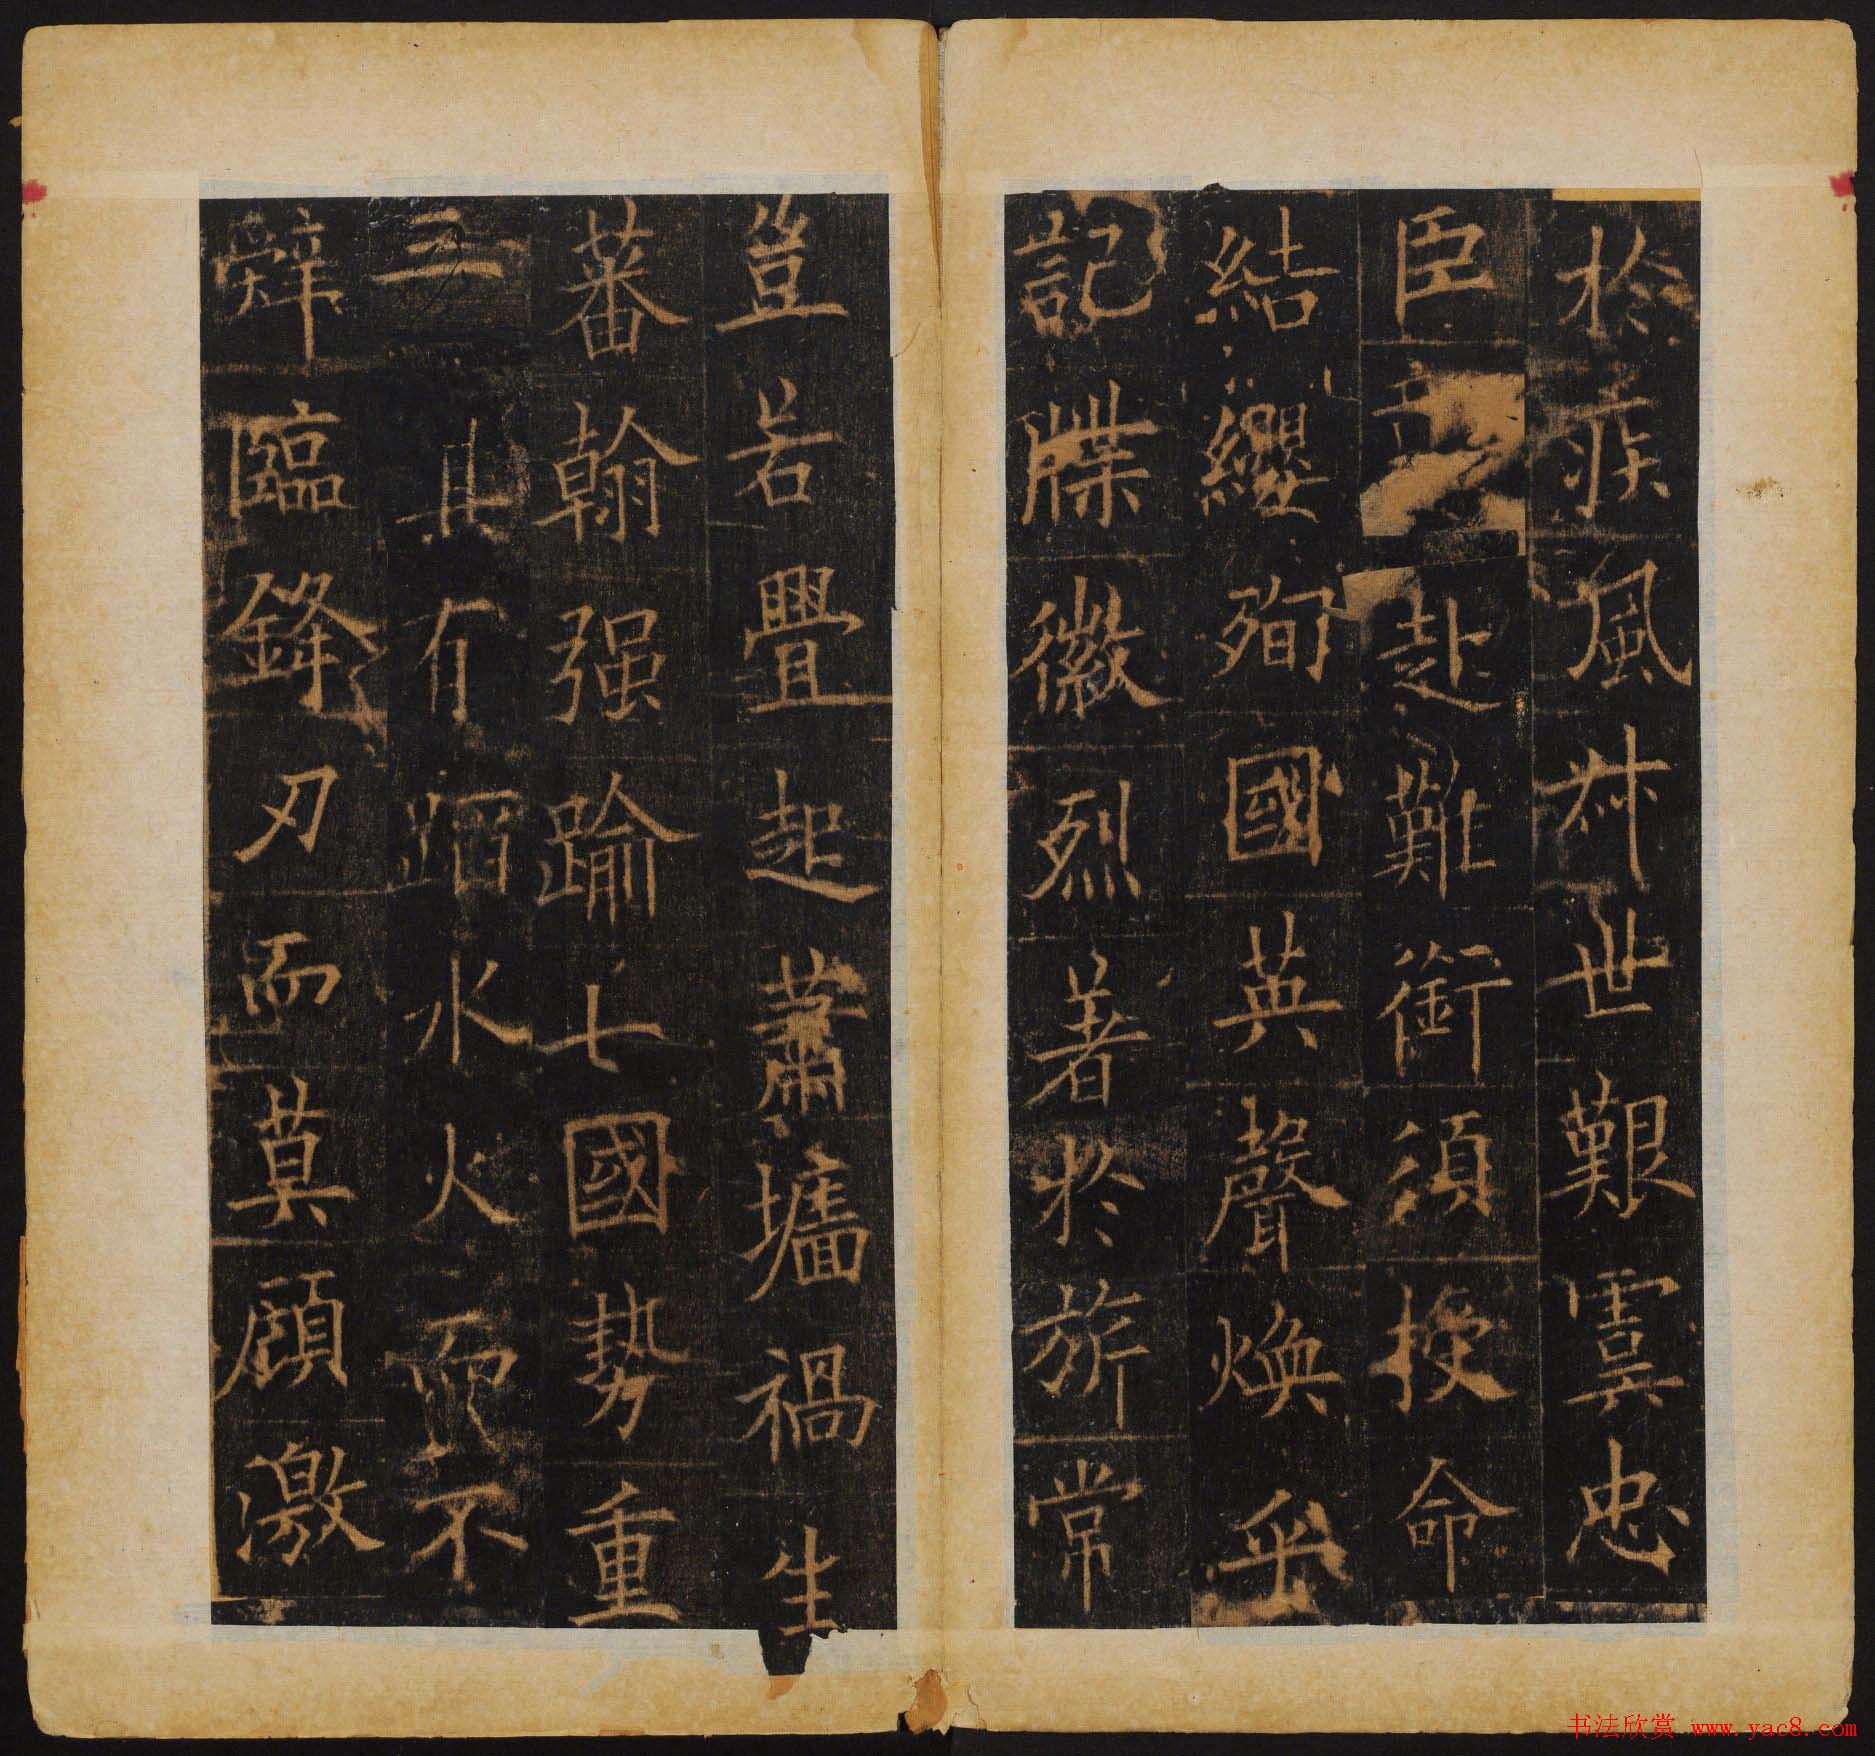 於疾風叔世艱虞忠
臣赴難銜須授命
結纓殉國英聲煥乎
記牒徽烈著於旂常
豈若舋起蕭墻禍生
蕃翰强踰七國勢重
三其有蹈水火而不
辭臨鋒刃而莫顧激
书法欣赏 www.yac8.com